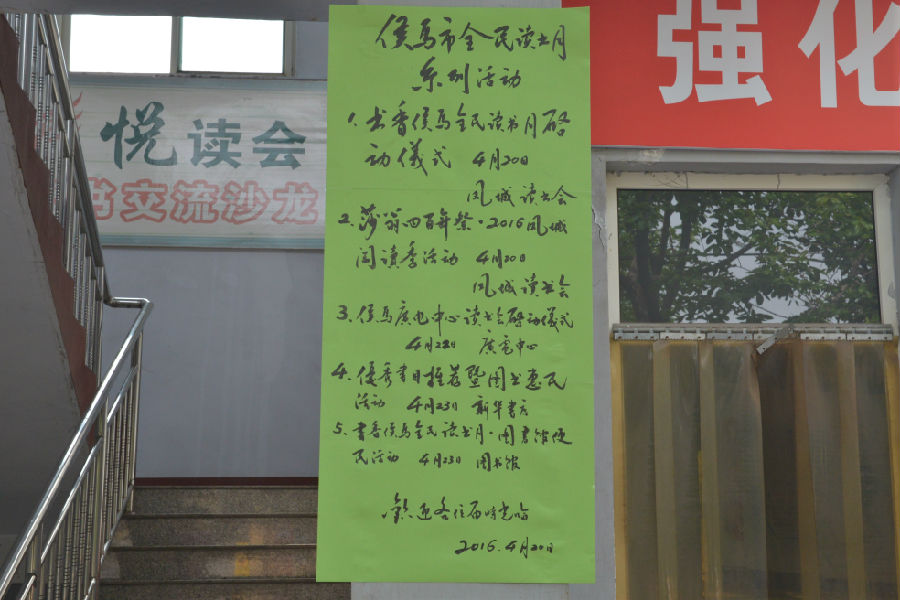 侯马市全民读书月
系列活动
1.书香侯马全民读书月启
动仪式 4月20日
凤城读书会
2.莎翁四百年祭·2016凤城
阅读季活动 4月20日
凤城读书会
3.侯马广电中心读书会启动仪式
4月22日 廣電中心
4.优秀書目推荐暨图书惠民
活动 4月23日 新华書店
5.書香侯马全民读书月·图書馆便
民活动 4月23日 图书馆
欢迎各位届时光临
2016.4月20日
悦读会
书交流沙龙
强化